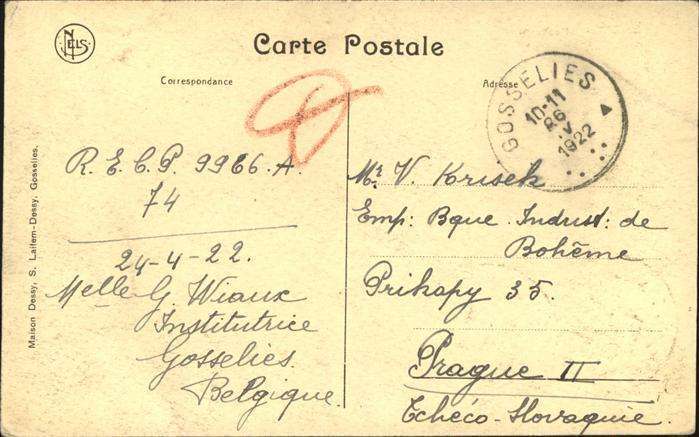 NELS
Carte Postale
Correspondance
Adresse
GOSSELIES
10-11
26
V
1922
R.E.C.P. 9966.A.
74
24-4-22.
Melle G. Wiaux
Institutrice
Gosselies.
Belgique.
Mr V. Krisek
Emp: Bque Indust: de
Bohême
Prikopy 35.
Prague II
Tchéco-Slovaquie.
Maison Dessy, S. Lallem-Dessy, Gosselies.